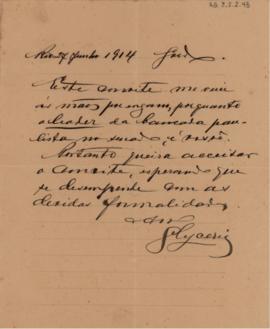 Rio 7 Junho 1914
Este convite me veiu
ás mãos por engano, porquanto
o leader da bancada pau-
lista no
Portanto queira acceitar
o convite, esperando que
se desempenhe com as
devidas formalidades
Glycerio